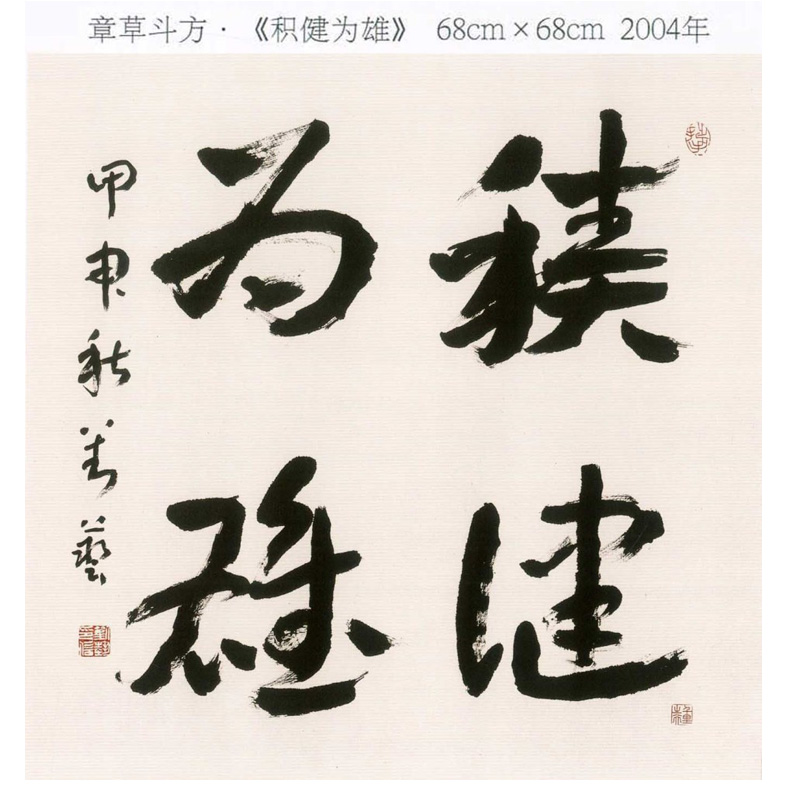 章草斗方·《积健为雄》 68cm×68cm 2004年
積健
为雄
甲申秋万艺